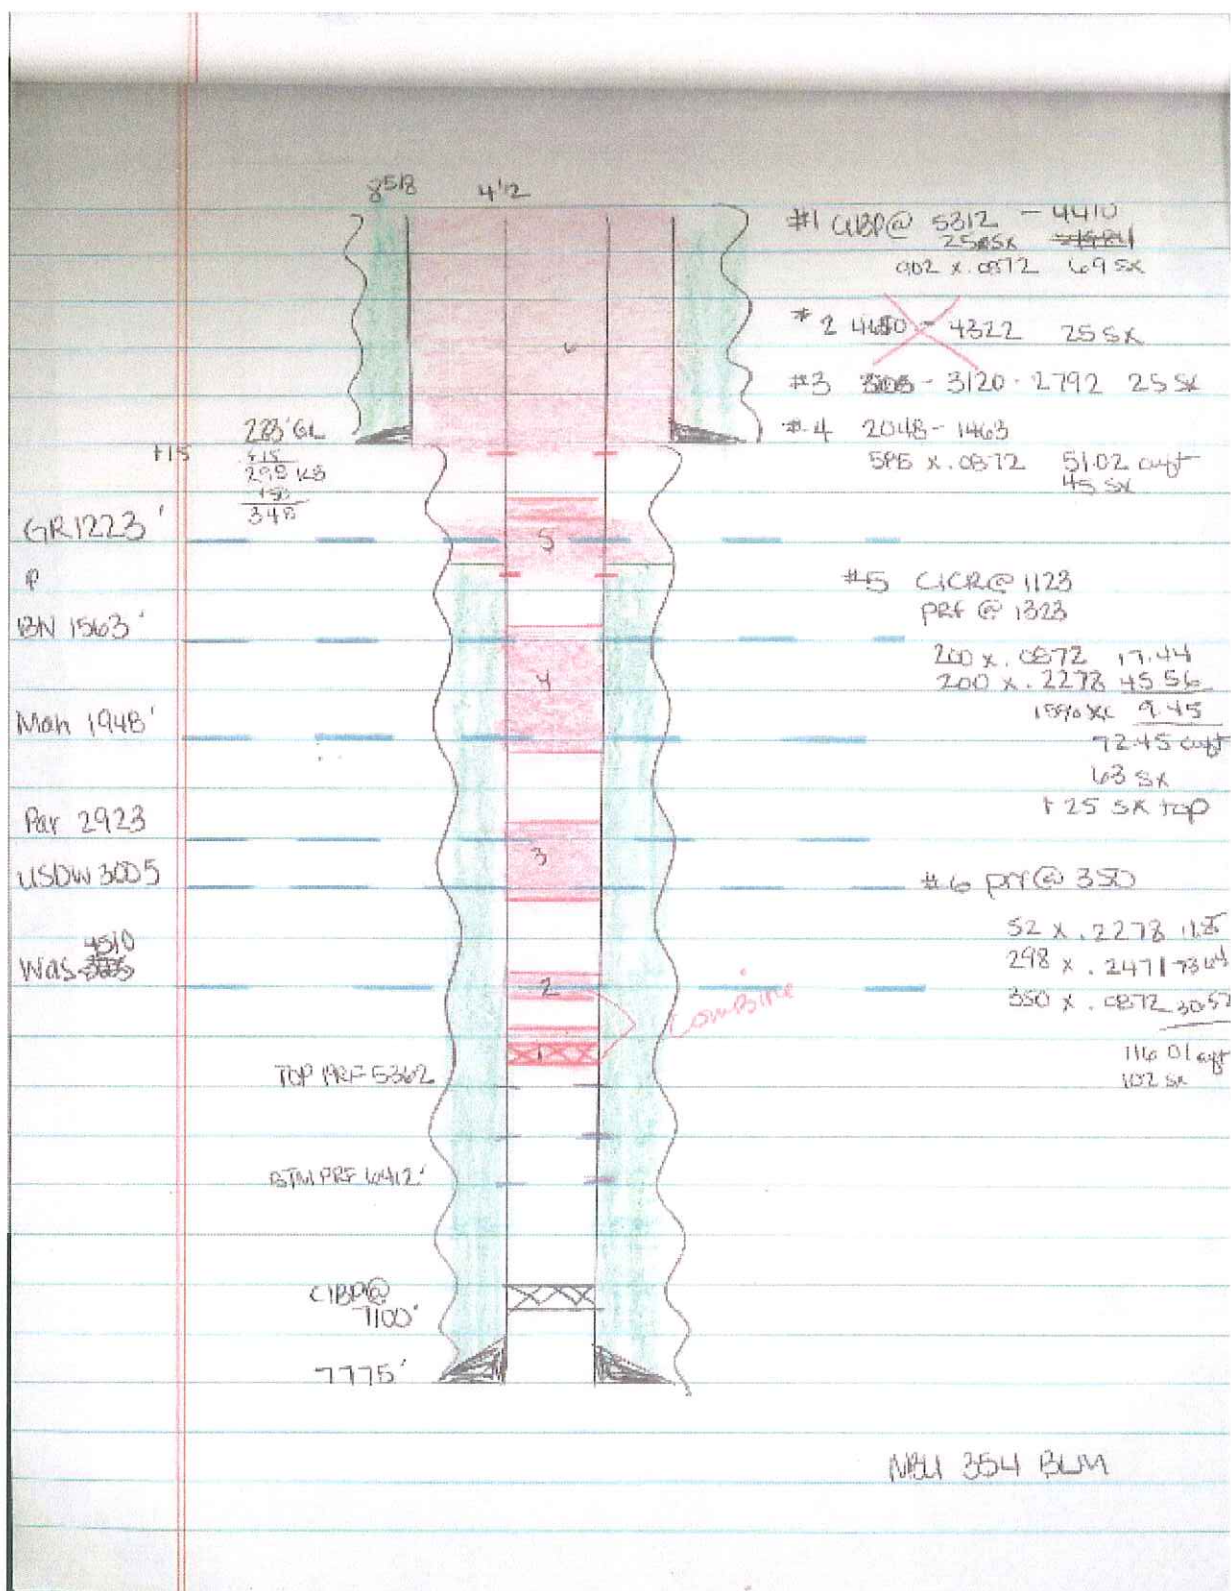 8 5/8 4 1/2
#1 CIBP@ 5312 - 4410
25 SX
902 x .0872 69 SX
#2 - 4322 25 SX
#3 - 3120 - 2792 25 SX
#4 2048 - 1463
x .0872 51.02 cuft
45 SX
+15
GL
+15
298 KB
+50
348
GR 1223'
BN 1563'
Mah 1948'
Par 2923
USDW 3005
4510
Was
6
5
4
3
2
1
#5 CICR@ 1123
PRF @ 1323
200 x .0872 17.44
200 x .2278 45.56
15% XC 9.45
72.45 cuft
63 SX
+ 25 SX top
#6 prf @ 350
52 x .2278
298 x .2471
350 x .0872 30.52
116.01 cuft
102 SX
Combine
TOP PRF 5362
BTM PRF 6412'
CIBP@
7100'
7775'
NBU 354 BLM